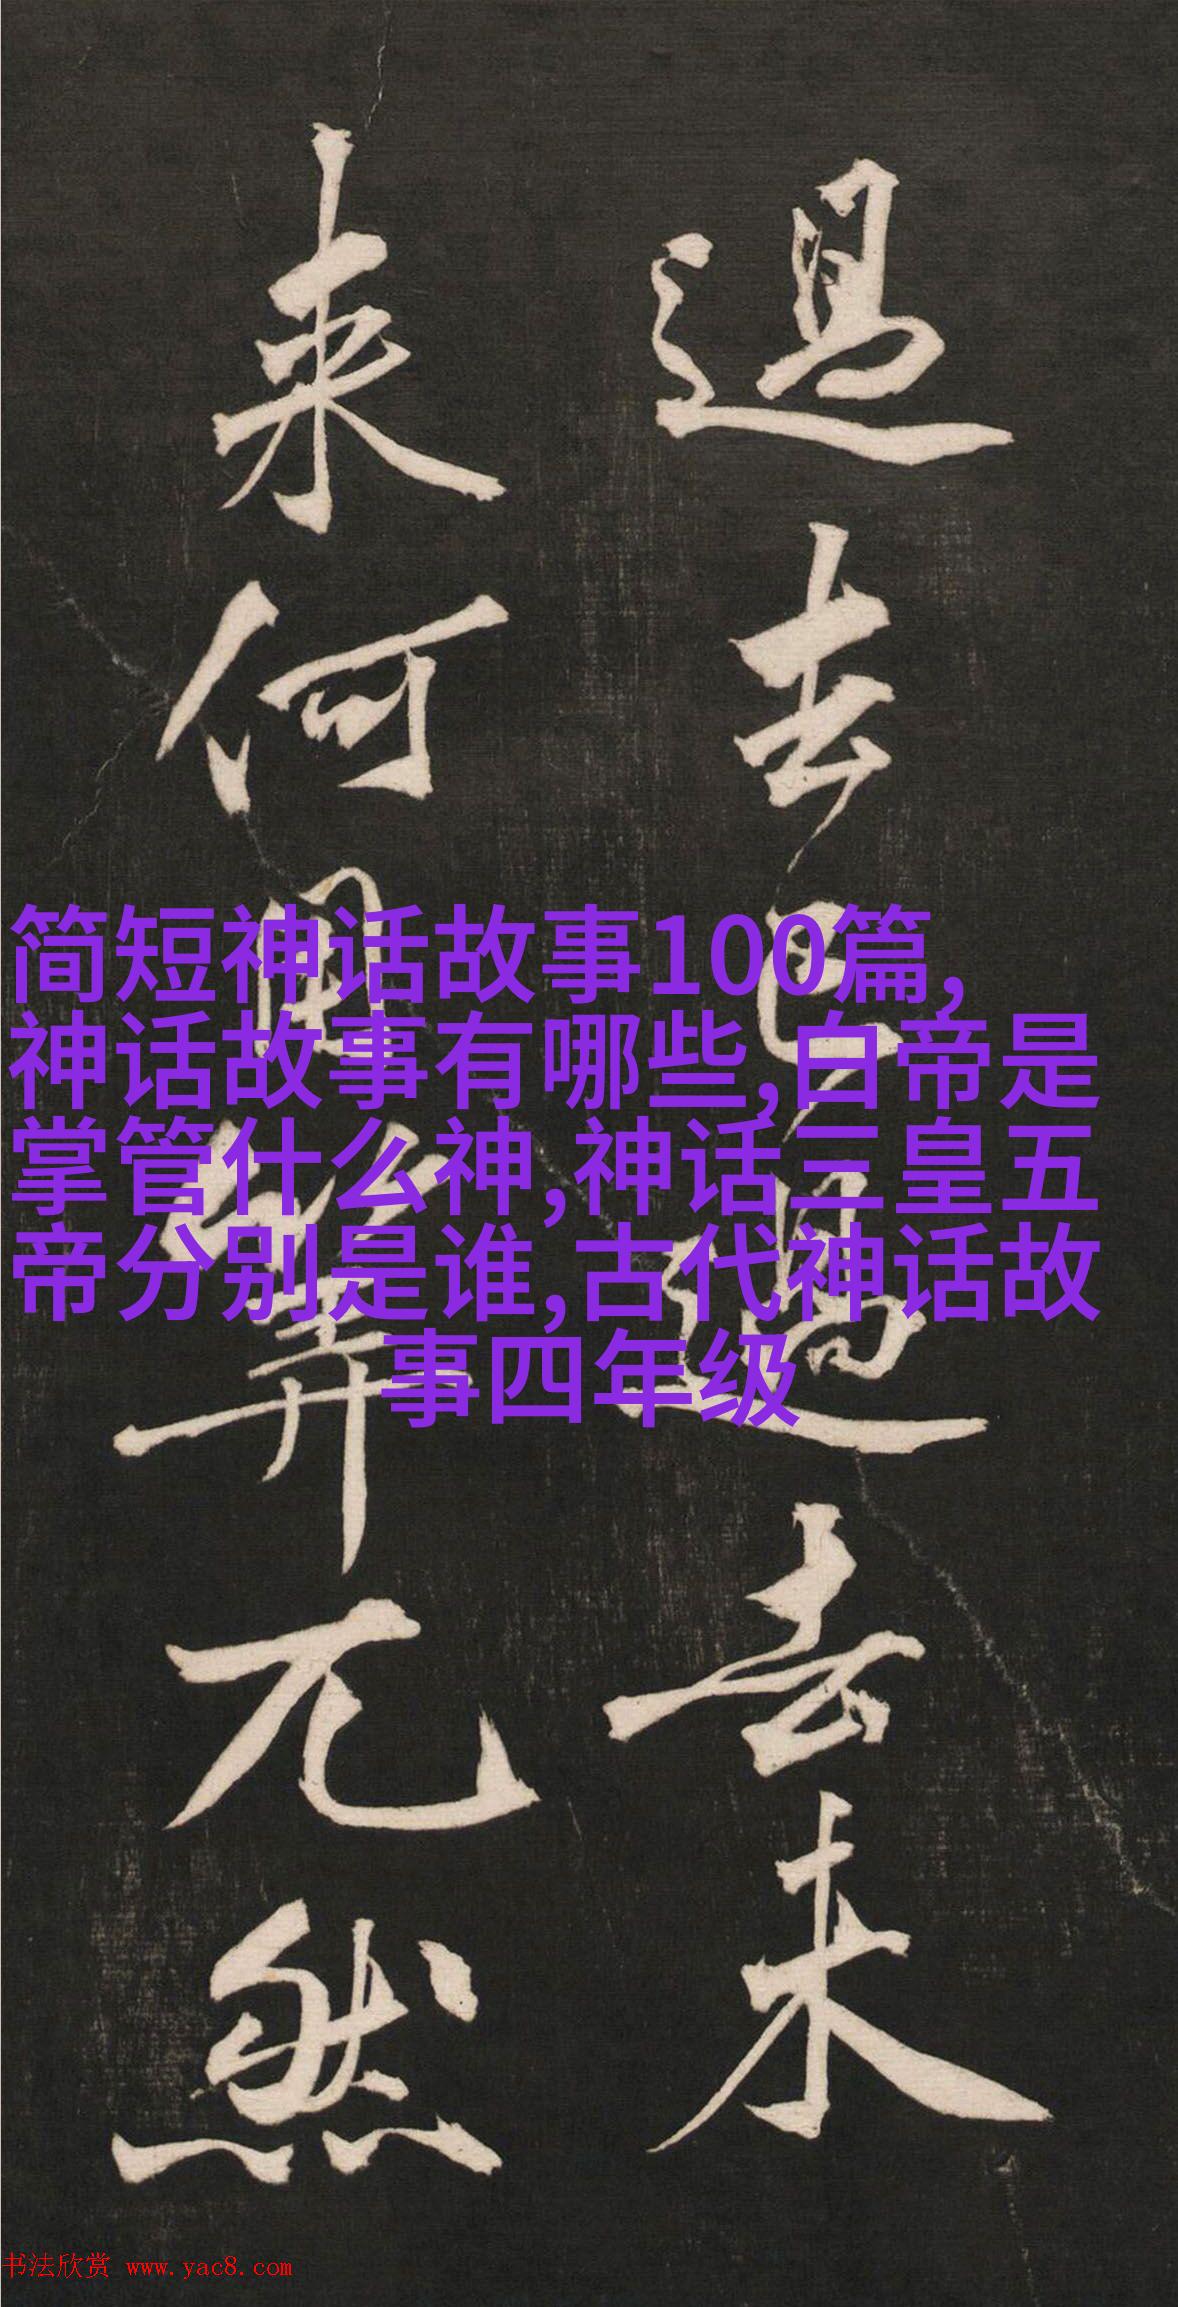 過去已過去未
来何用筭兀然
简短神话故事100篇,
神话故事有哪些,白帝是
掌管什么神,神话三皇五
帝分别是谁,古代神话故
事四年级
书法欣赏 www.yac8.com